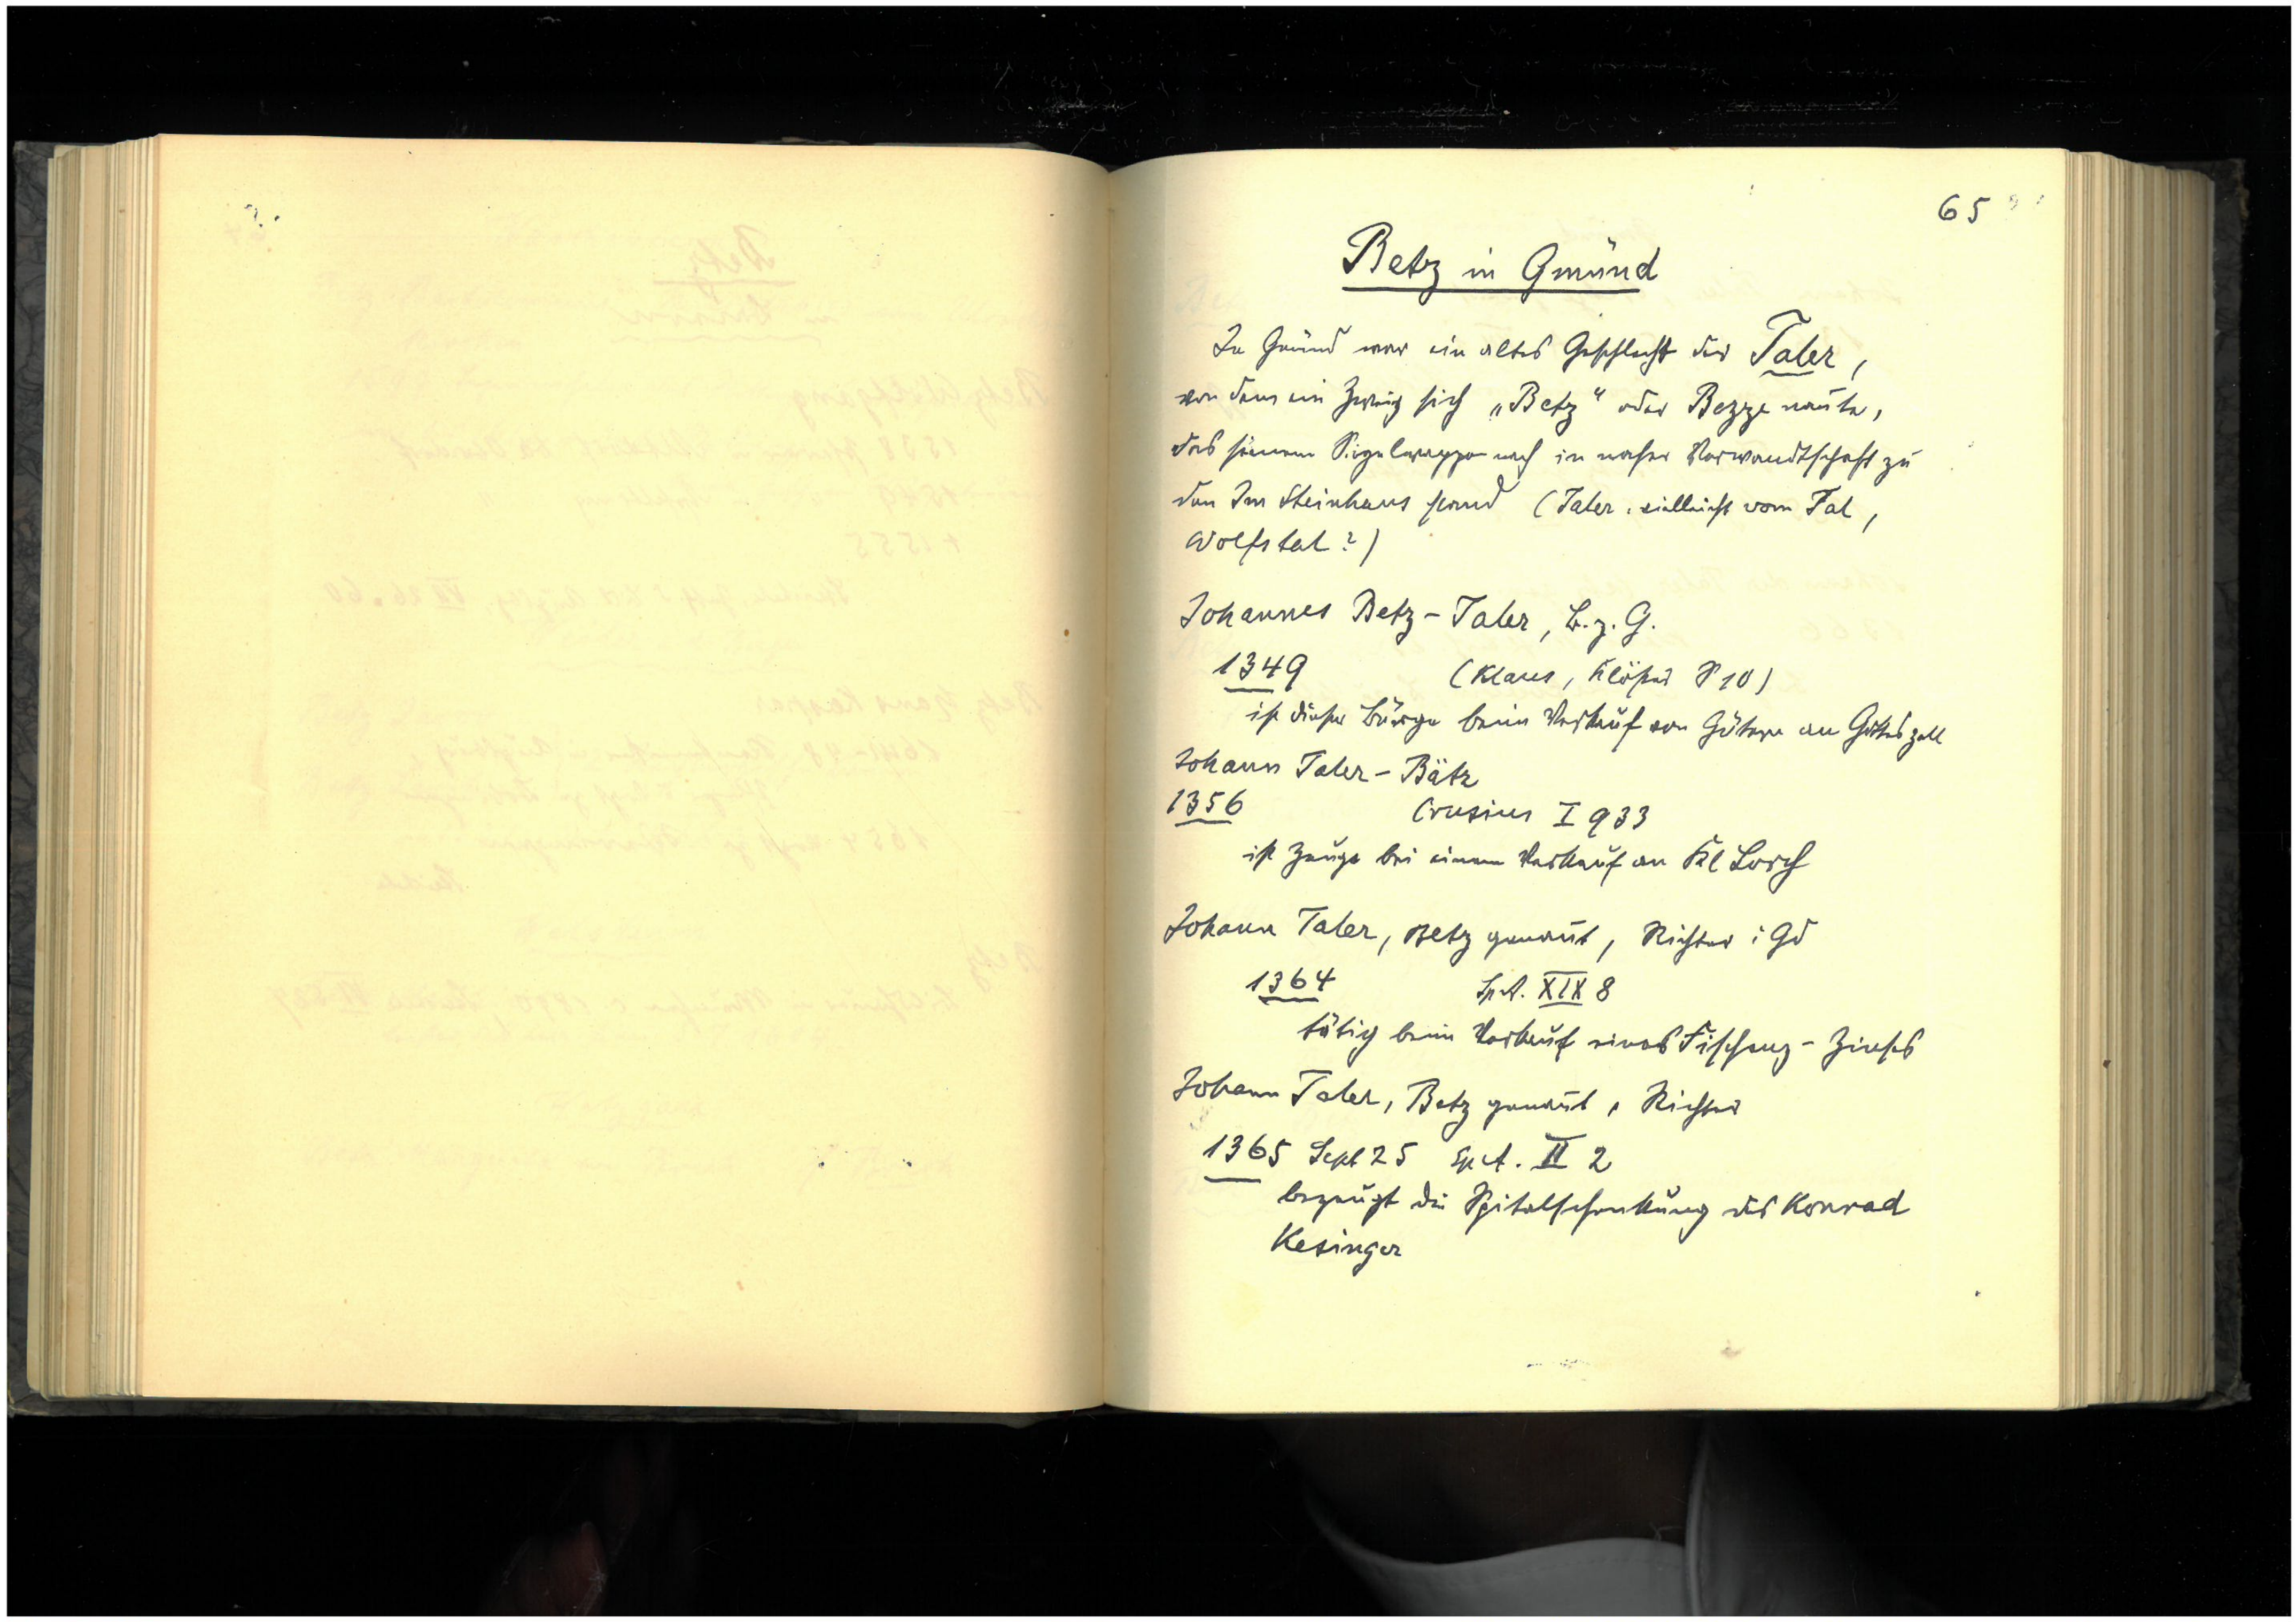 65
Betz in Gmünd
In Gmünd war ein altes Geschlecht der Taler,
von dem ein Zweig sich „Betz" oder Bezze nañte,
das seinem Sigelwappen nach in naher Verwandtschaft zu
den Im Steinhaus stand (Taler, vielleicht vom Tal,
Wolfstal?)
Johannes Betz-Taler, B. z. G.
1349 (Klaus, Klöster S 10)
ist dieser Bürge beim Verkauf von Gütern an Gotteszell
Johann Taler-Bätz
1356 Crusius I 933
ist Zeuge bei einem Verkauf an Kl Lorch
Johann Taler, Betz genañt, Richter i Gd
1364 Sp.A. XIX 8
tätig beim Verkauf eines Fischenz-Zinses
Johann Taler, Betz genañt, Richter
1365 Sept 25 Sp.A. II 2
bezeugt die Spitalschenkung des Konrad
Kesinger